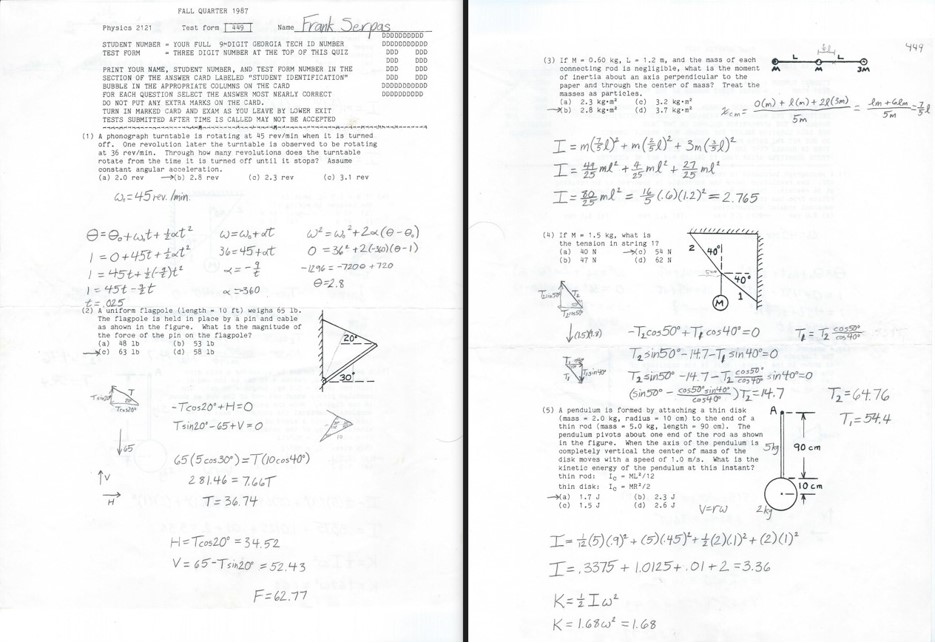 FALL QUARTER 1987
Physics 2121 Test form 449 Name Frank Serpas
STUDENT NUMBER = YOUR FULL 9-DIGIT GEORGIA TECH ID NUMBER
TEST FORM = THREE DIGIT NUMBER AT THE TOP OF THIS QUIZ
PRINT YOUR NAME, STUDENT NUMBER, AND TEST FORM NUMBER IN THE
SECTION OF THE ANSWER CARD LABELED "STUDENT IDENTIFICATION"
BUBBLE IN THE APPROPRIATE COLUMNS ON THE CARD
FOR EACH QUESTION SELECT THE ANSWER MOST NEARLY CORRECT
DO NOT PUT ANY EXTRA MARKS ON THE CARD.
TURN IN MARKED CARD AND EXAM AS YOU LEAVE BY LOWER EXIT
TESTS SUBMITTED AFTER TIME IS CALLED MAY NOT BE ACCEPTED
DDDDDDDDDD
DDDDDDDDDDD
DDD DDD
DDD DDD
DDD DDD
DDD DDD
DDDDDDDDDDD
DDDDDDDDDD
(1) A phonograph turntable is rotating at 45 rev/min when it is turned
off. One revolution later the turntable is observed to be rotating
at 36 rev/min. Through how many revolutions does the turntable
rotate from the time it is turned off until it stops? Assume
constant angular acceleration.
(a) 2.0 rev →(b) 2.8 rev (c) 2.3 rev (c) 3.1 rev
ω₀=45 rev/min.
θ=θ₀+ω₀t+½αt²
1=0+45t+½αt²
1=45t+½(-9/t)t²
1=45t-9/2t
t=.025
ω=ω₀+αt
36=45+αt
α=-9/t
α=-360
ω²=ω₀²+2α(θ-θ₀)
0=36²+2(-360)(θ-1)
-1296=-720θ+720
θ=2.8
(2) A uniform flagpole (length = 10 ft) weighs 65 lb.
The flagpole is held in place by a pin and cable
as shown in the figure. What is the magnitude of
the force of the pin on the flagpole?
(a) 48 lb (b) 53 lb
→(c) 63 lb (d) 58 lb
20°
30°
T
Tsin20°
Tcos20°
↓65
↑V
→
H
-Tcos20°+H=0
Tsin20°-65+V=0
65(5cos30°)=T(10cos40°)
281.46=7.66T
T=36.74
H=Tcos20°=34.52
V=65-Tsin20°=52.43
F=62.77
449
(3) If M = 0.60 kg, L = 1.2 m, and the mass of each
connecting rod is negligible, what is the moment
of inertia about an axis perpendicular to the
paper and through the center of mass? Treat the
masses as particles.
(a) 2.3 kg·m² (c) 3.2 kg·m²
→(b) 2.8 kg·m² (d) 3.7 kg·m²
L L
M M 3M
x_cm = (0(m)+l(m)+2l(3m))/5m = (lm+6lm)/5m = 7/5 l
I=m(7/5 l)²+m(2/5 l)²+3m(3/5 l)²
I=49/25 ml²+4/25 ml²+27/25 ml²
I=80/25 ml²=16/5(.6)(1.2)²=2.765
(4) If M = 1.5 kg, what is
the tension in string 1?
(a) 40 N →(c) 54 N
(b) 47 N (d) 62 N
2
40°
50°
40°
1
M
T₂sin50°
T₂
T₂cos50°
↓(1.5)(9.8)
T₁
T₁sin40°
-T₂cos50°+T₁cos40°=0
T₁=T₂ cos50°/cos40°
T₂sin50°-14.7-T₁sin40°=0
T₂sin50°-14.7-T₂ cos50°/cos40° sin40°=0
(sin50°-cos50°sin40°/cos40°)T₂=14.7
T₂=64.76
T₁=54.4
(5) A pendulum is formed by attaching a thin disk
(mass = 2.0 kg, radius = 10 cm) to the end of a
thin rod (mass = 5.0 kg, length = 90 cm). The
pendulum pivots about one end of the rod as shown
in the figure. When the axis of the pendulum is
completely vertical the center of mass of the
disk moves with a speed of 1.0 m/s. What is the
kinetic energy of the pendulum at this instant?
thin rod: I_c = ML²/12
thin disk: I_c = MR²/2
→(a) 1.7 J (b) 2.3 J
(c) 1.5 J (d) 2.6 J
A
5kg
90 cm
10 cm
2kg
V=rω
I=1/12(5)(.9)²+(5)(.45)²+½(2)(.1)²+(2)(1)²
I=.3375+1.0125+.01+2=3.36
K=½Iω²
K=1.68ω²=1.68